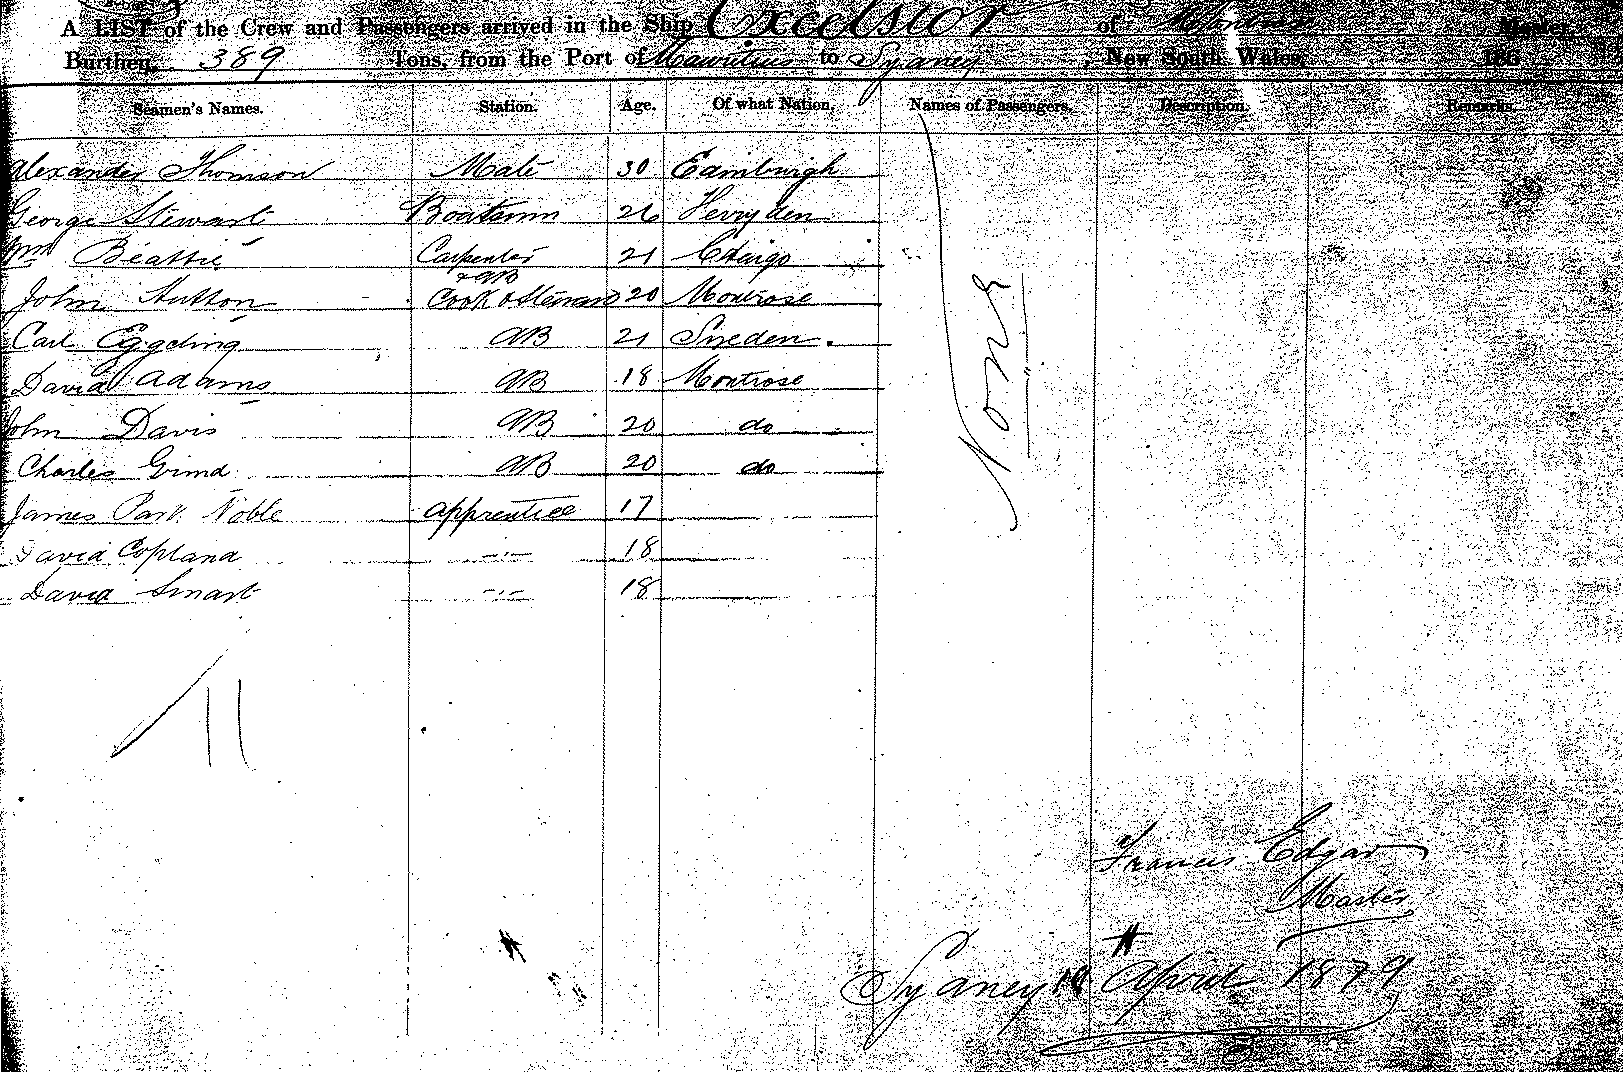 A LIST of the Crew and Passengers arrived in the Ship Excelsior of Montrose Master,
Burthen, 389 Tons, from the Port of Mauritius to Sydney, New South Wales, 186
Seamen's Names. Station. Age. Of what Nation, Names of Passengers. Description. Remarks.
Alexander Thomson Mate 30 Edinburgh
George Stewart Boatsmn 26
Wm Beattie Carpenter 21
+ AB
John Hutton Cook & Steward 20 Montrose
Carl Eggeling AB 21 Sweden.
David Adams AB 18 Montrose
John Davis AB 20 do
Charles Grind AB 20 do
James Park Noble apprentice 17
David Copland -"- 18
David Smart -"- 18
None
11
Francis Edgar
Master
Sydney April 1879